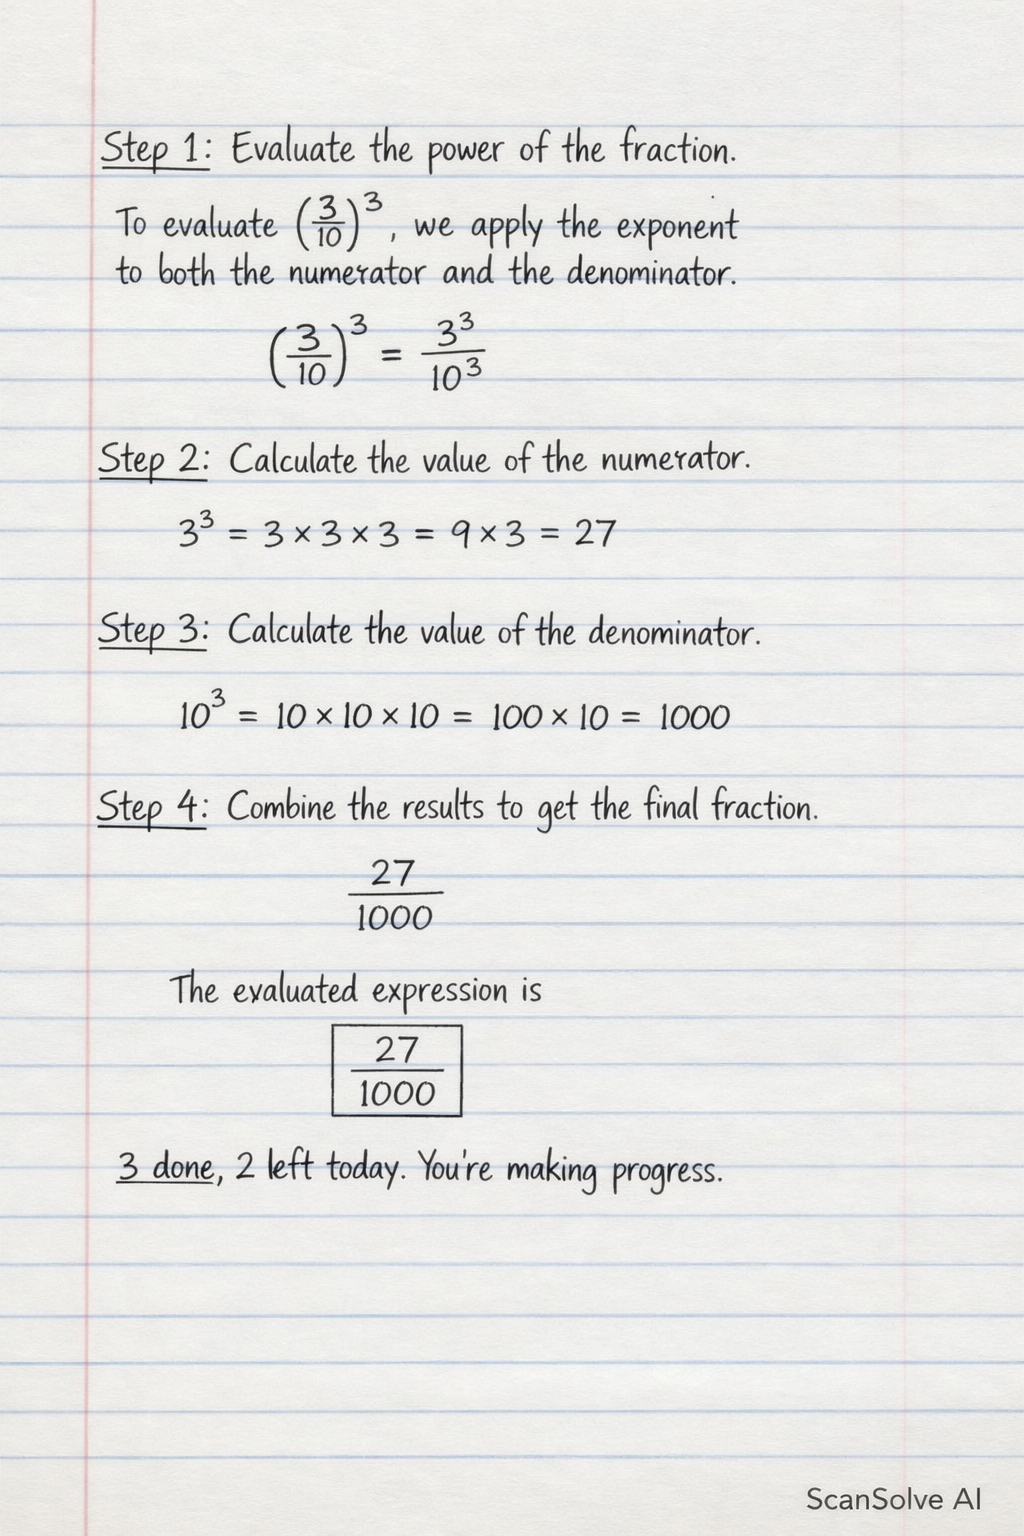 Step 1: Evaluate the power of the fraction.
To evaluate (3/10)^3, we apply the exponent
to both the numerator and the denominator.
(3/10)^3 = 3^3/10^3
Step 2: Calculate the value of the numerator.
3^3 = 3 × 3 × 3 = 9 × 3 = 27
Step 3: Calculate the value of the denominator.
10^3 = 10 × 10 × 10 = 100 × 10 = 1000
Step 4: Combine the results to get the final fraction.
27/1000
The evaluated expression is
27/1000
3 done, 2 left today. You're making progress.
ScanSolve AI